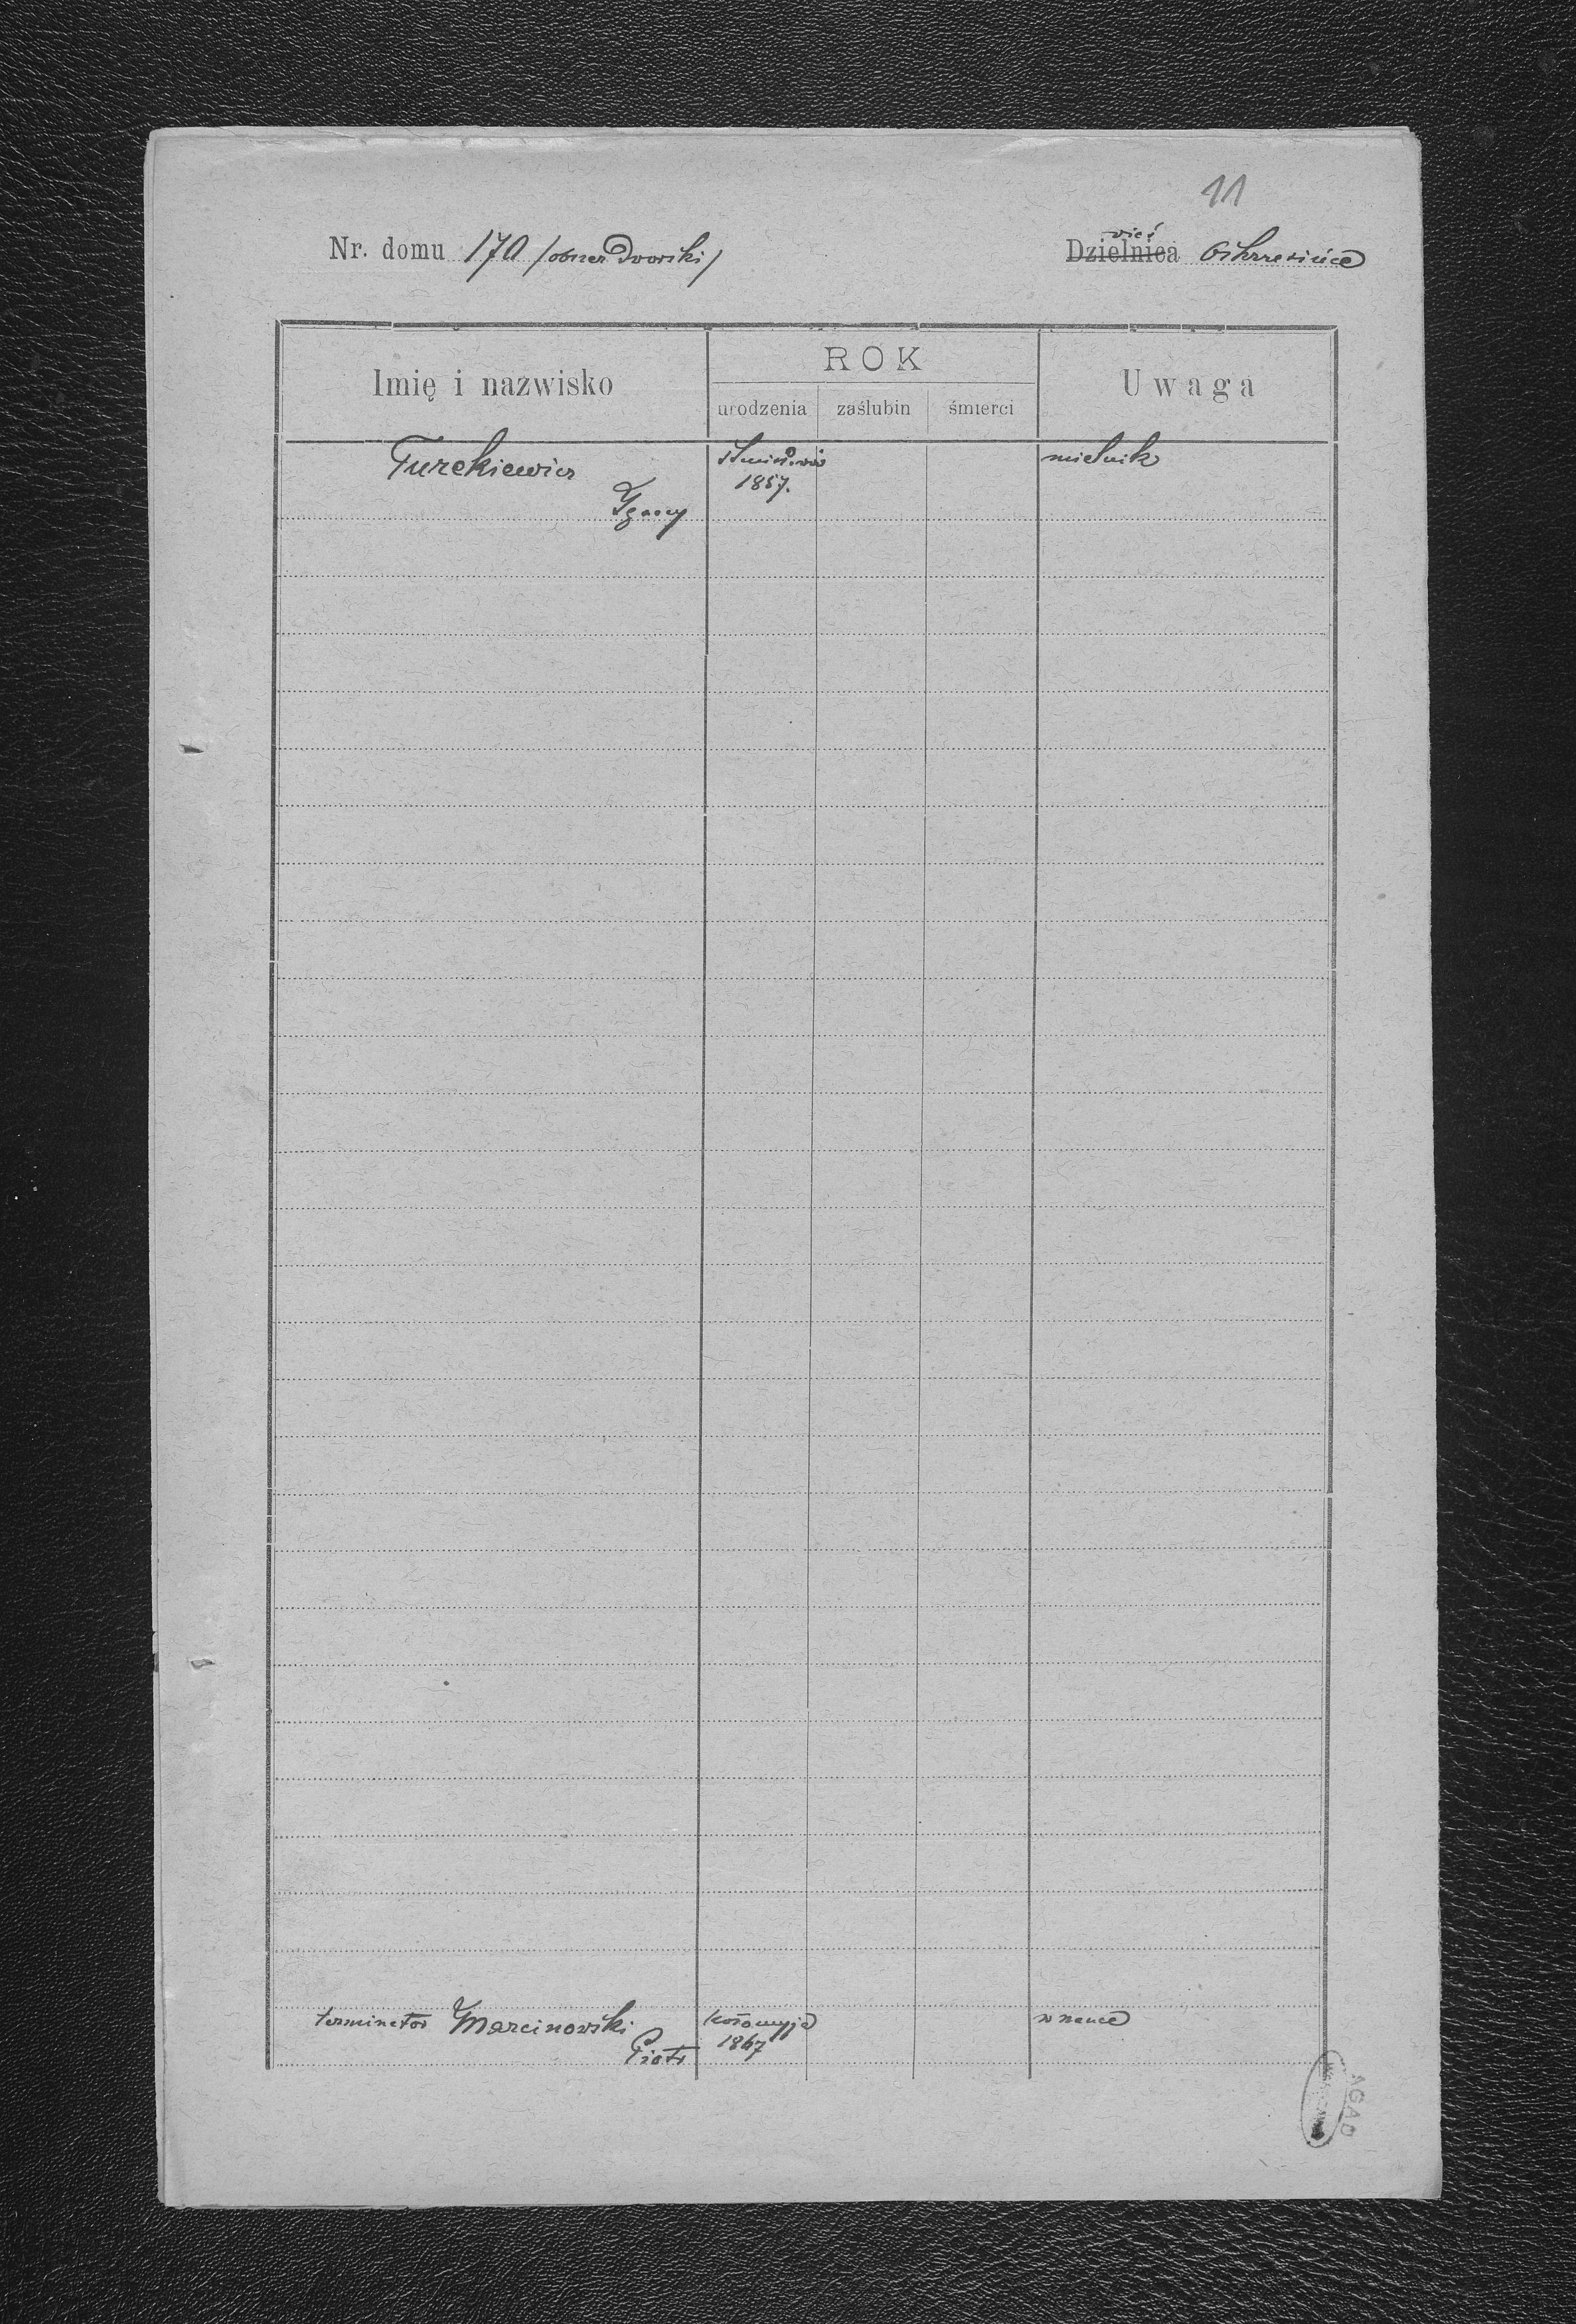 11
Nr. domu 170 /obszar Dworski/
wieś
Dzielnica Oskrzesińce
Imię i nazwisko
ROK
urodzenia zaślubin śmierci
Uwaga
Turekiewicz
Ignacy
1857.
mielnik
terminator Marcinowski
Piotr
Kołomyja
1867
w nauce
AGAD